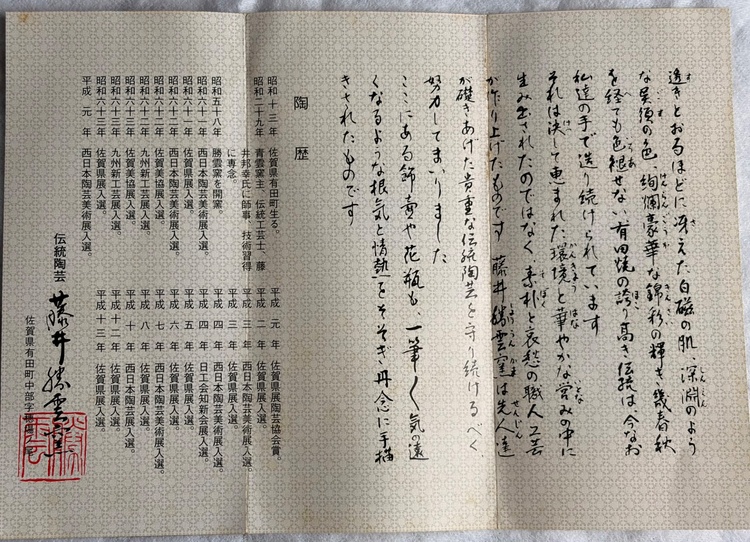 透きとおるほどに冴えた白磁の肌、深淵のよう
な呉須の色、絢爛豪華な錦彩の輝き、幾春秋
を経ても色褪せない有田焼の誇り高き伝統は、今なお
私達の手で造り続けられています
それは決して恵まれた環境と華やかな営みの中に
生み出されたのではなく、素朴と哀愁の職人工芸
が作り上げたものです 藤井勝雲窯は先人達
が礎きあげた貴重な伝統陶芸を守り続けるべく、
努力してまいりました
ここにある飾壺や花瓶も、一筆〱気の遠
くなるような根気と情熱をそそぎ丹念に手描
きされたものです
陶歴
昭和十三年 佐賀県有田町生る。
昭和二十九年 青雲窯主、伝統工芸士、藤
井邦幸氏に師事、技術習得
に専念。
昭和五十八年 勝雲窯を開窯。
昭和六十一年 西日本陶芸美術展入選。
昭和六十一年 佐賀県展入選。
昭和六十二年 西日本陶芸美術展入選。
昭和六十二年 佐賀美協展入選。
昭和六十二年 九州新工芸展入選。
昭和六十三年 佐賀美協展入選。
昭和六十三年 九州新工芸展入選。
昭和六十三年 佐賀県展入選。
平成元年 西日本陶芸美術展入選。
平成元年 佐賀県展陶芸協会賞。
平成二年 佐賀県展入選。
平成三年 西日本陶芸美術展入選。
平成三年 佐賀県展入選。
平成四年 日工会知新会展入選。
平成四年 西日本陶芸美術展入選。
平成五年 佐賀県展入選。
平成六年 西日本陶芸美術展入選。
平成七年 西日本陶芸美術展入選。
平成八年 佐賀県展入選。
平成十年 西日本陶芸美術展入選。
平成十二年 佐賀県展入選。
平成十三年 佐賀県展入選。
伝統陶芸 藤井勝雲窯
佐賀県有田町中部字